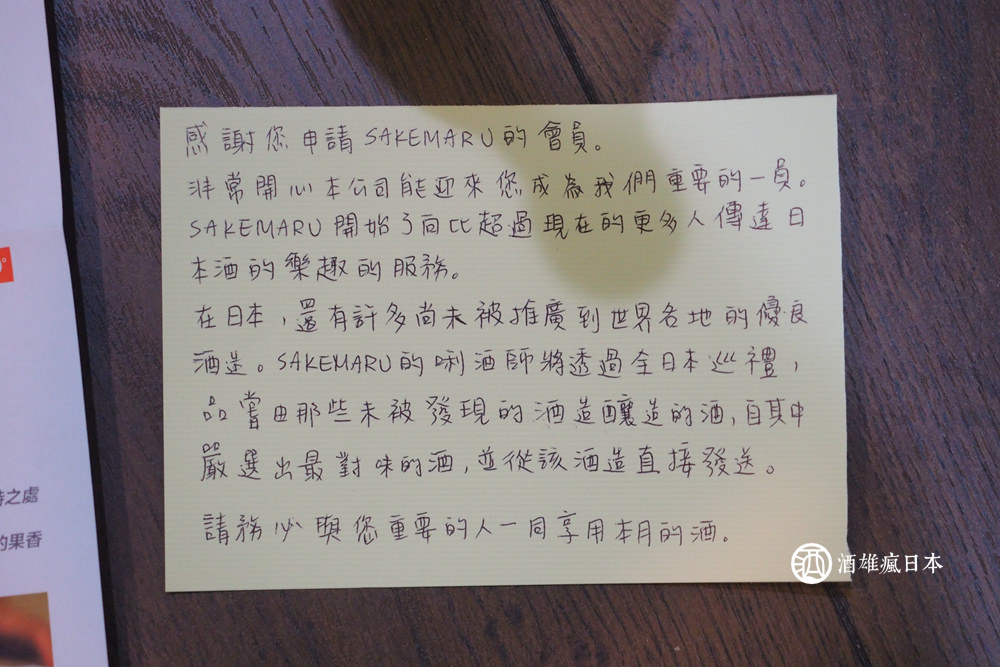 感謝您申請SAKEMARU的會員。
非常開心本公司能迎來您成為我們重要的一員。
SAKEMARU開始了向比超過現在的更多人傳達日
本酒的樂趣的服務。
在日本,還有許多尚未被推廣到世界各地的優良
酒造。SAKEMARU的唎酒師將透過全日本巡禮,
品嘗由那些未被發現的酒造釀造的酒,自其中
嚴選出最對味的酒,並從該酒造直接發送。
請務必與您重要的人一同享用本月的酒。
之處
的果香
酒雄瘋日本